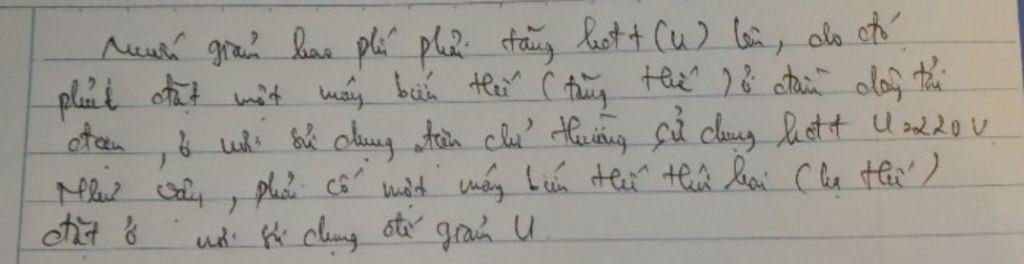 Muốn giảm hao phí phải tăng hđt (U) lên, do đó
phải đặt một máy biến thế (tăng thế) ở đầu dây tải
điện, ở nơi sử dụng điện chỉ thường sử dụng hđt U=220V
Như vậy, phải có một máy biến thế thứ hai (hạ thế)
đặt ở nơi sử dụng để giảm U